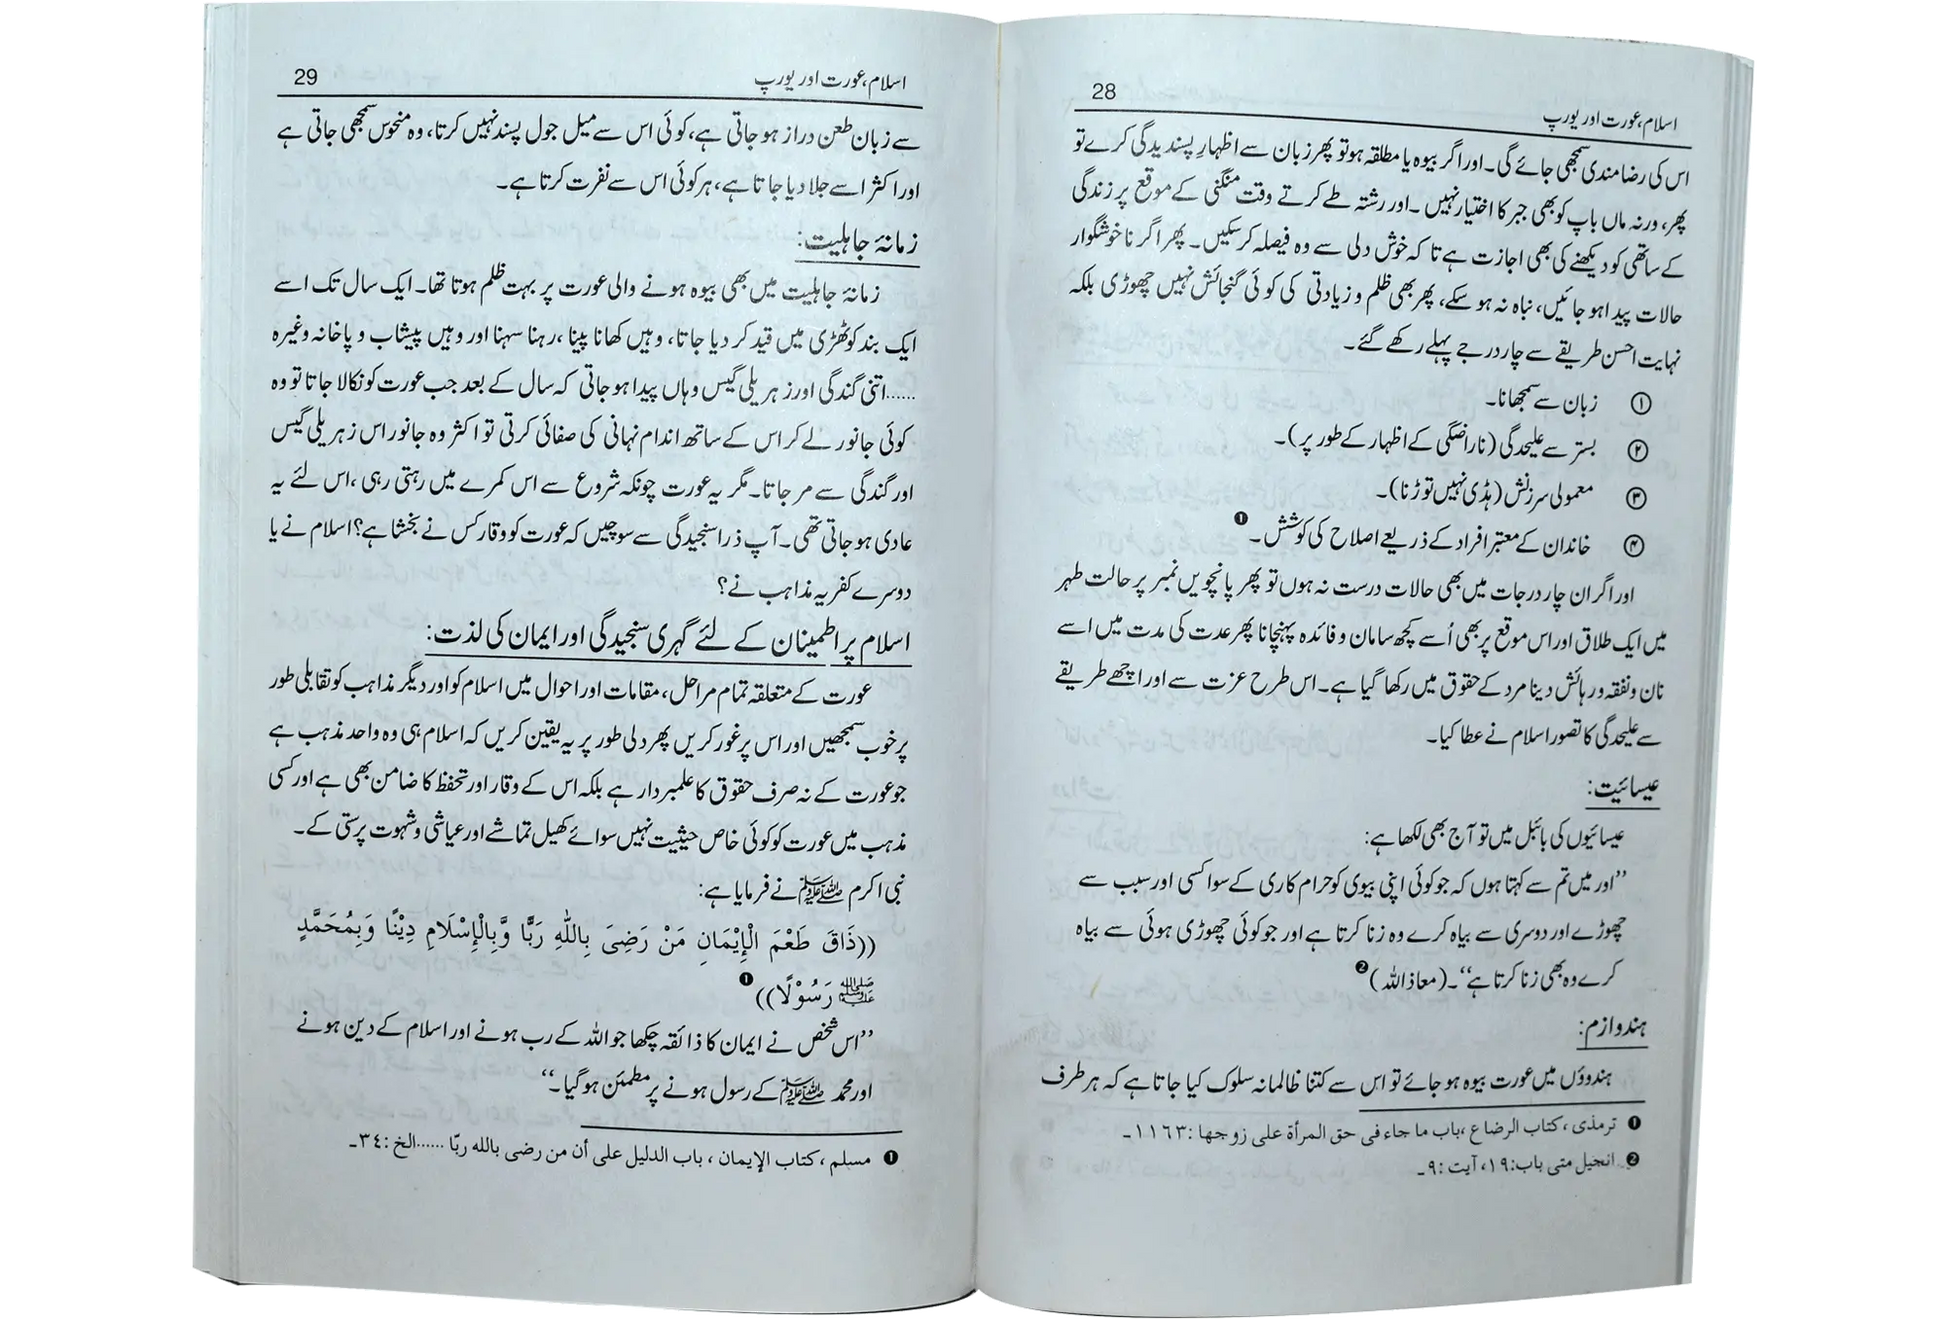 28
اسلام، عورت اور یورپ
اس کی رضامندی سمجھی جائے گی۔ اور اگر بیوہ یا مطلقہ ہو تو پھر زبان سے اظہارِ پسندیدگی کرے تو
پھر، ورنہ ماں باپ کو بھی جبر کا اختیار نہیں۔ اور رشتہ طے کرتے وقت منگنی کے موقع پر زندگی
کے ساتھی کو دیکھنے کی بھی اجازت ہے تا کہ خوش دلی سے وہ فیصلہ کر سکیں۔ پھر اگر ناخوشگوار
حالات پیدا ہو جائیں، نباہ نہ ہو سکے، پھر بھی ظلم و زیادتی کی کوئی گنجائش نہیں چھوڑی بلکہ
نہایت احسن طریقے سے چار درجے پہلے رکھے گئے۔
① زبان سے سمجھانا۔
② بستر سے علیحدگی (ناراضگی کے اظہار کے طور پر)۔
③ معمولی سرزنش (ہڈی نہیں توڑنا)۔
④ خاندان کے معتبر افراد کے ذریعے اصلاح کی کوشش۔ ❶
اور اگر ان چار درجات میں بھی حالات درست نہ ہوں تو پھر پانچویں نمبر پر حالت طہر
میں ایک طلاق اور اس موقع پر بھی اُسے کچھ سامان و فائدہ پہنچانا پھر عدت کی مدت میں اسے
نان و نفقہ و رہائش دینا مرد کے حقوق میں رکھا گیا ہے۔ اس طرح عزت سے اور اچھے طریقے
سے علیحدگی کا تصور اسلام نے عطا کیا۔
عیسائیت:
عیسائیوں کی بائبل میں تو آج بھی لکھا ہے:
’’اور میں تم سے کہتا ہوں کہ جو کوئی اپنی بیوی کو حرام کاری کے سوا کسی اور سبب سے
چھوڑے اور دوسری سے بیاہ کرے وہ زنا کرتا ہے اور جو کوئی چھوڑی ہوئی سے بیاہ
کرے وہ بھی زنا کرتا ہے‘‘۔ (معاذ اللہ) ❷
ہندوازم:
ہندوؤں میں عورت بیوہ ہو جائے تو اس سے کتنا ظالمانہ سلوک کیا جاتا ہے کہ ہر طرف
❶ ترمذی، کتاب الرضاع، باب ما جاء فی حق المرأة علی زوجها: ١١٦٣۔
❷ انجیل متی باب: ١٩، آیت: ٩۔
29
اسلام، عورت اور یورپ
سے زبان طعن دراز ہو جاتی ہے، کوئی اس سے میل جول پسند نہیں کرتا، وہ منحوس سمجھی جاتی ہے
اور اکثر اسے جلا دیا جاتا ہے، ہر کوئی اس سے نفرت کرتا ہے۔
زمانۂ جاہلیت:
زمانۂ جاہلیت میں بھی بیوہ ہونے والی عورت پر بہت ظلم ہوتا تھا۔ ایک سال تک اسے
ایک بند کوٹھڑی میں قید کر دیا جاتا، وہیں کھانا پینا، رہنا سہنا اور وہیں پیشاب و پاخانہ وغیرہ
......اتنی گندگی اور زہریلی گیس وہاں پیدا ہو جاتی کہ سال کے بعد جب عورت کو نکالا جاتا تو وہ
کوئی جانور لے کر اس کے ساتھ اندام نہانی کی صفائی کرتی تو اکثر وہ جانور اس زہریلی گیس
اور گندگی سے مر جاتا۔ مگر یہ عورت چونکہ شروع سے اس کمرے میں رہتی رہی، اس لئے یہ
عادی ہو جاتی تھی۔ آپ ذرا سنجیدگی سے سوچیں کہ عورت کو وقار کس نے بخشا ہے؟ اسلام نے یا
دوسرے کفریہ مذاہب نے؟
اسلام پر اطمینان کے لئے گہری سنجیدگی اور ایمان کی لذت:
عورت کے متعلقہ تمام مراحل، مقامات اور احوال میں اسلام کو اور دیگر مذاہب کو تقابلی طور
پر خوب سمجھیں اور اس پر غور کریں پھر دلی طور پر یہ یقین کریں کہ اسلام ہی وہ واحد مذہب ہے
جو عورت کے نہ صرف حقوق کا علمبردار ہے بلکہ اس کے وقار اور تحفظ کا ضامن بھی ہے اور کسی
مذہب میں عورت کو کوئی خاص حیثیت نہیں سوائے کھیل تماشے اور عیاشی و شہوت پرستی کے۔
نبی اکرم ﷺ نے فرمایا ہے:
((ذَاقَ طَعْمَ الْإِيْمَانِ مَنْ رَضِيَ بِاللّٰهِ رَبًّا وَّبِالْإِسْلَامِ دِيْنًا وَبِمُحَمَّدٍ
ﷺ رَسُوْلًا)) ❶
’’اس شخص نے ایمان کا ذائقہ چکھا جو اللہ کے رب ہونے اور اسلام کے دین ہونے
اور محمد ﷺ کے رسول ہونے پر مطمئن ہو گیا۔‘‘
❶ مسلم، کتاب الإیمان، باب الدلیل علی أن من رضی بالله ربّا ......الخ: ٣٤۔